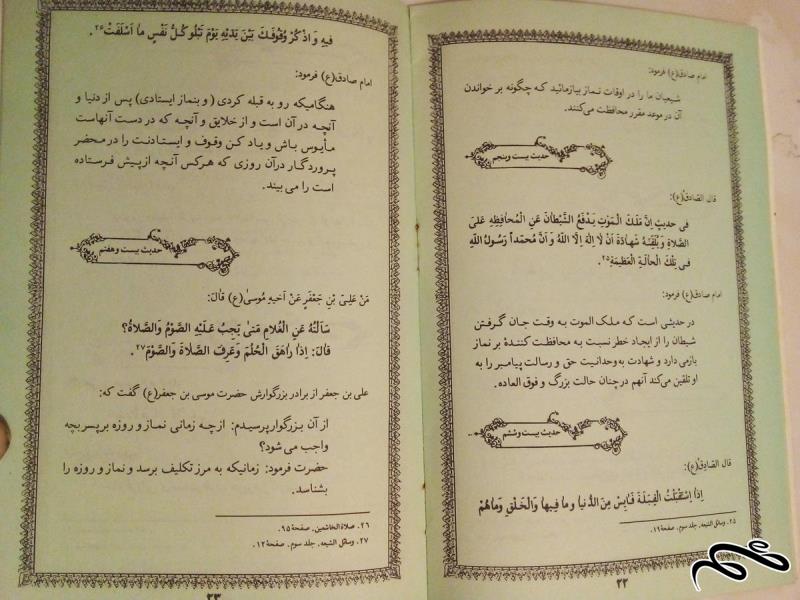 امام صادق(ع) فرمود:
شیعیان ما را در اوقات نماز بیازمائید که چگونه بر خواندن
آن در موعد مقرر محافظت می‌کنند.
حدیث بیست وپنجم
قال الصّادق(ع):
فی حدیثٍ اِنَّ مَلَکَ الْمَوْتِ یَدْفَعُ الشَّیْطانَ عَنِ الْمُحافِظِهِ عَلیَ
الصَّلاةِ وَیُلَقِّنُهُ شَهادَةَ اَنْ لا اِلهَ اِلَّا اللهُ وَاَنَّ مُحَمَّداً رَسُولُ اللهِ
فی تِلْکَ الْحالَةِ الْعَظیمَةِ۲۵.
امام صادق(ع) فرمود:
در حدیثی است که ملک الموت به وقت جان گرفتن
شیطان را از ایجاد خطر نسبت به محافظت کنندهٔ بر نماز
بازمی دارد و شهادت به وحدانیت حق و رسالت پیامبر را به
او تلقین می‌کند آنهم درچنان حالت بزرگ و فوق العاده.
حدیث بیست وششم
قال الصّادِقُ(ع):
اِذا اِسْتَقْبَلْتَ الْقِبْلَةَ فَایِسْ مِنَ الدُّنیا وما فیها وَالْخَلْقِ وَماهُمْ
۲۵. وسائل الشیعه. جلد سوم. صفحهٔ ۱۹.
۲۲
فیهِ وَاذْکُرْ وُقُوفَکَ بَیْنَ یَدَیْهِ یَوْمَ تَبْلُو کُلُّ نَفْسٍ ما اَسْلَفَتْ۲۶.
امام صادق(ع) فرمود:
هنگامیکه رو به قبله کردی (و بنماز ایستادی) پس از دنیا و
آنچه در آن است و از خلایق و آنچه که در دست آنهاست
مأیوس باش و یاد کن وقوف و ایستادنت را در محضر
پروردگار درآن روزی که هرکس آنچه از پیش فرستاده
است را می بیند.
حدیث بیست وهفتم
عَنْ عَلِیِّ بْنِ جَعْفَرٍ عَنْ اَخیهِ مُوسیٰ(ع) قالَ:
سَاَلْتُهُ عَنِ الْغُلامِ مَتیٰ یَجِبُ عَلَیْهِ الصَّوْمُ وَالصَّلاةُ؟
قالَ: اِذا راهَقَ الْحُلُمَ وَعَرِفَ الصَّلاةَ وَالصَّوْمَ۲۷.
علی بن جعفر از برادر بزرگوارش حضرت موسی بن جعفر(ع) گفت که:
از آن بزرگوار پرسیدم: از چه زمانی نماز و روزه بر پسر بچه
واجب می شود؟
حضرت فرمود: زمانیکه به مرز تکلیف برسد و نماز و روزه را
بشناسد.
۲۶. صلاة الخاشعین. صفحهٔ ۹۵.
۲۷. وسائل الشیعه. جلد سوم. صفحهٔ ۱۲.
۲۳